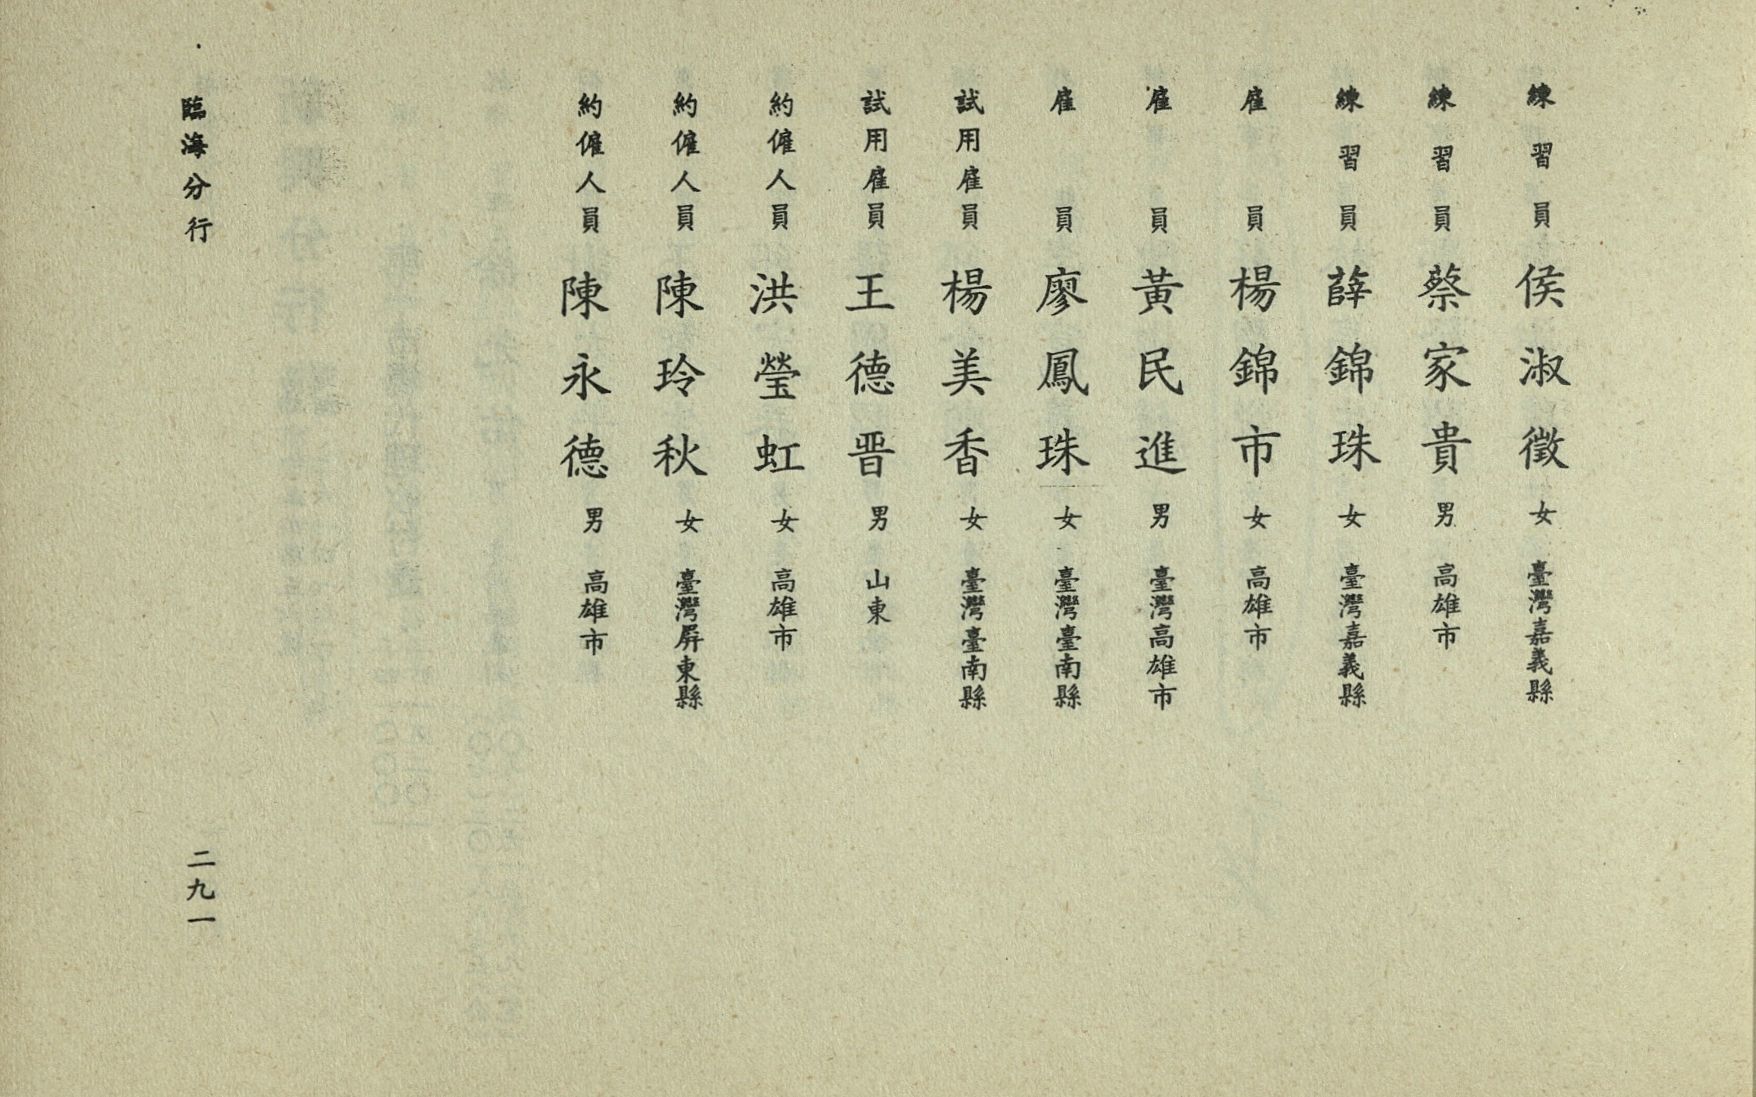 練習員 侯淑徵 女 臺灣嘉義縣
練習員 蔡家貴 男 高雄市
練習員 薛錦珠 女 臺灣嘉義縣
雇員 楊錦市 女 高雄市
雇員 黃民進 男 臺灣高雄市
雇員 廖鳳珠 女 臺灣臺南縣
試用雇員 楊美香 女 臺灣臺南縣
試用雇員 王德晋 男 山東
約僱人員 洪瑩虹 女 高雄市
約僱人員 陳玲秋 女 臺灣屏東縣
約僱人員 陳永德 男 高雄市
臨海分行
二九一